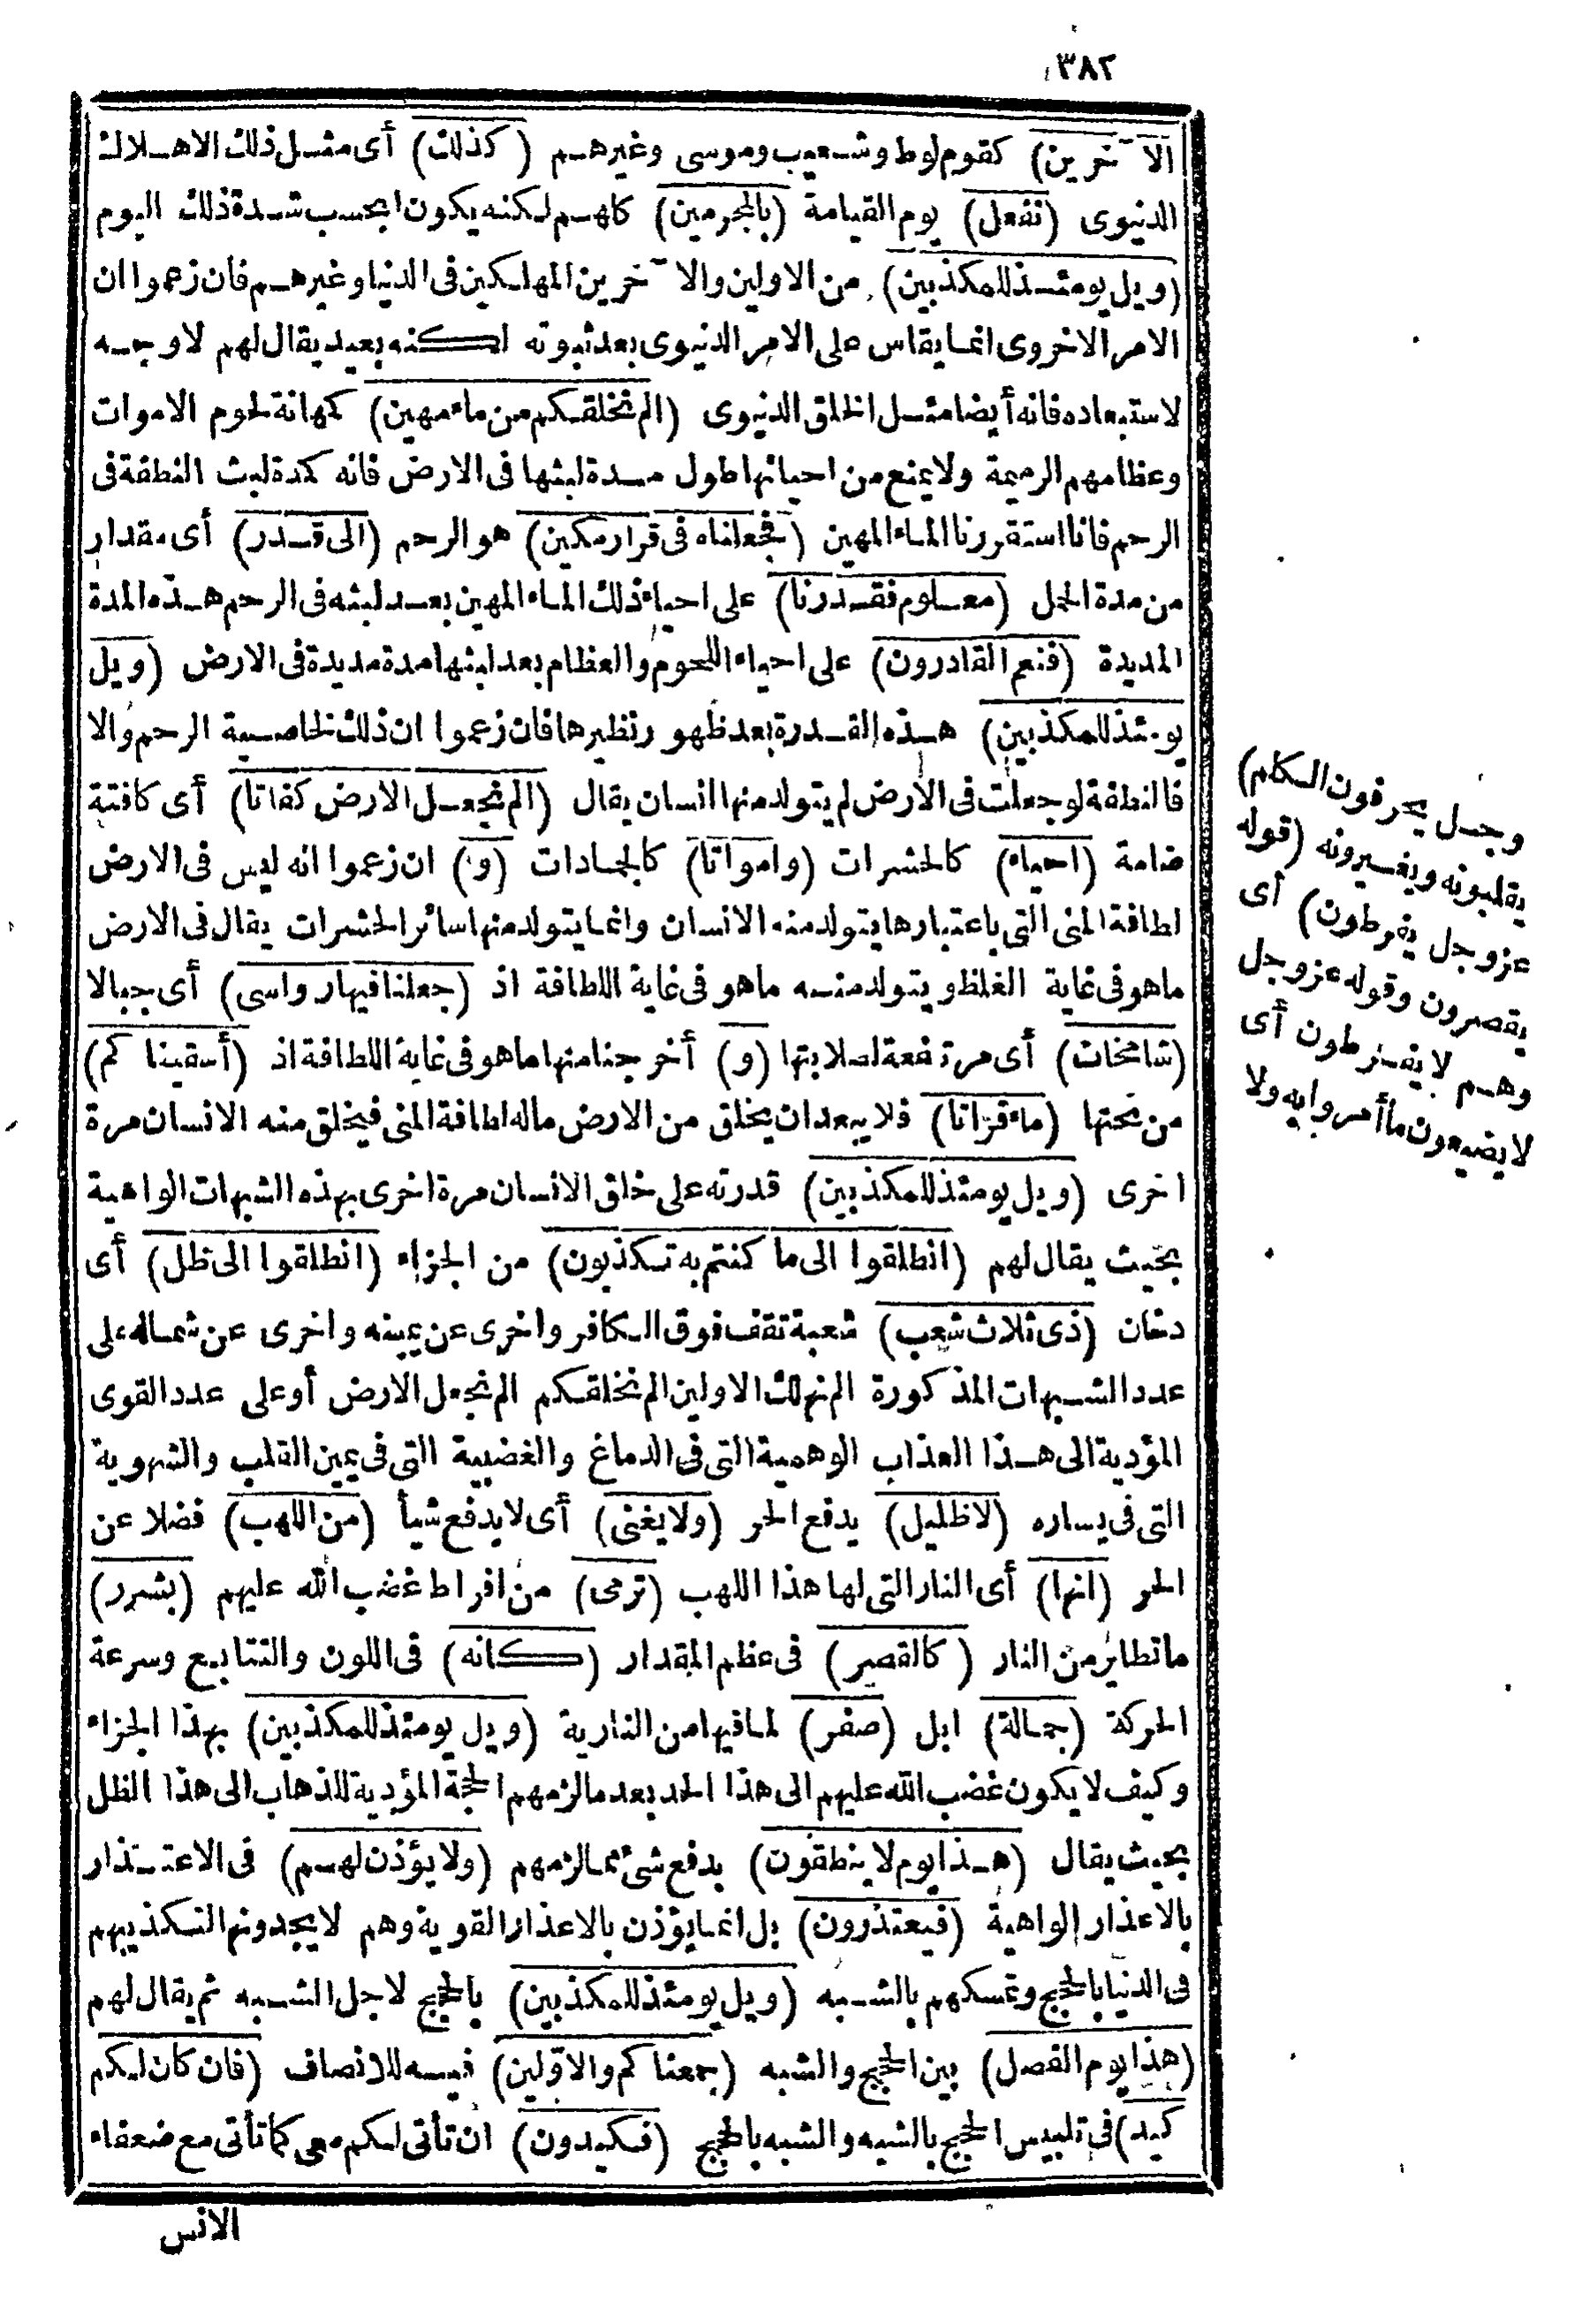 ٣٨٢
الآخرين) كقوم لوط وشعيب وموسى وغيرهم (كذلك) أى مثل ذلك الاهلاك
الدنيوى (نفعل) يوم القيامة (بالمجرمين) كلهم لكنه يكون بحسب شدة ذلك اليوم
(ويل يومئذ للمكذبين) من الاولين والآخرين المهلكين فى الدنيا وغيرهم فان زعموا ان
الامر الاخروى انما يقاس على الامر الدنيوى بعد ثبوته لكنه بعيد يقال لهم لا وجه
لاستبعاده فانه أيضا مثل الخلق الدنيوى (ألم نخلقكم من ماء مهين) كمهانة لحوم الاموات
وعظامهم الرميمة ولا يمنع من احيائها طول مدة لبثها فى الارض فانه كمدة لبث النطفة فى
الرحم فانا استقررنا الماء المهين (فجعلناه فى قرار مكين) هو الرحم (الى قدر) أى مقدار
من مدة الحمل (معلوم فقدرنا) على احياء ذلك الماء المهين بعد لبثه فى الرحم هذه المدة
المديدة (فنعم القادرون) على احياء اللحوم والعظام بعد لبثها مدة مديدة فى الارض (ويل
يومئذ للمكذبين) هذه القدرة بعد ظهور نظيرها فان زعموا ان ذلك لخاصية الرحم والا
فالنطفة لو جعلت فى الارض لم يتولد منها انسان يقال (ألم نجعل الارض كفاتا) أى كافتة
ضامة (احياء) كالحشرات (وامواتا) كالجمادات (و) ان زعموا انه ليس فى الارض
لطافة المنى التى باعتبارها يتولد منه الانسان وانما يتولد منها سائر الحشرات يقال فى الارض
ما هو فى غاية الغلظ ويتولد منه ما هو فى غاية اللطافة اذ (جعلنا فيها رواسى) أى جبالا
(شامخات) أى مرتفعة لصلابتها (و) أخرجنا منها ما هو فى غاية اللطافة اذ (أسقيناكم)
من تحتها (ماء فراتا) فلا يبعد ان يخلق من الارض ماله لطافة المنى فيخلق منه الانسان مرة
اخرى (ويل يومئذ للمكذبين) قدرته على خلق الانسان مرة اخرى بهذه الشبهات الواهية
بحيث يقال لهم (انطلقوا الى ما كنتم به تكذبون) من الجزاء (انطلقوا الى ظل) أى
دخان (ذى ثلاث شعب) شعبة تقف فوق الكافر واخرى عن يمينه واخرى عن شماله على
عدد الشبهات المذكورة ألم نهلك الاولين ألم نخلقكم ألم نجعل الارض أو على عدد القوى
المؤدية الى هذا العذاب الوهمية التى فى الدماغ والغضبية التى فى يمين القلب والشهوية
التى فى يساره (لا ظليل) يدفع الحر (ولا يغنى) أى لا يدفع شيأ (من اللهب) فضلا عن
الحر (انها) أى النار التى لها هذا اللهب (ترمى) من افراط غضب الله عليهم (بشرر)
ما تطاير من النار (كالقصر) فى عظم المقدار (كانه) فى اللون والتتابع وسرعة
الحركة (جمالة) ابل (صفر) لما فيها من النارية (ويل يومئذ للمكذبين) بهذا الجزاء
وكيف لا يكون غضب الله عليهم الى هذا الحد بعد ما لزمهم الحجة المؤدية للذهاب الى هذا الظل
بحيث يقال (هذا يوم لا ينطقون) بدفع شئ مما لزمهم (ولا يؤذن لهم) فى الاعتذار
بالاعذار الواهية (فيعتذرون) بل انما يؤذن بالاعذار القوية وهم لا يجدونها لتكذيبهم
فى الدنيا بالحجج وتمسكهم بالشبه (ويل يومئذ للمكذبين) بالحجج لاجل الشبه ثم يقال لهم
(هذا يوم الفصل) بين الحجج والشبه (جمعناكم والاوّلين) فيه للانصاف (فان كان لكم
كيد) فى تلبيس الحجج بالشبه والشبه بالحجج (فكيدون) ان تأتى لكم معى كما تأتى مع ضعفاء
الانس
وجل يحرفون الكلم)
يقلبونه ويغيرونه (قوله
عز وجل يفرطون) أى
يقصرون وقوله عز وجل
وهم لا يفرطون أى
لا يضيعون ما أمروا به ولا